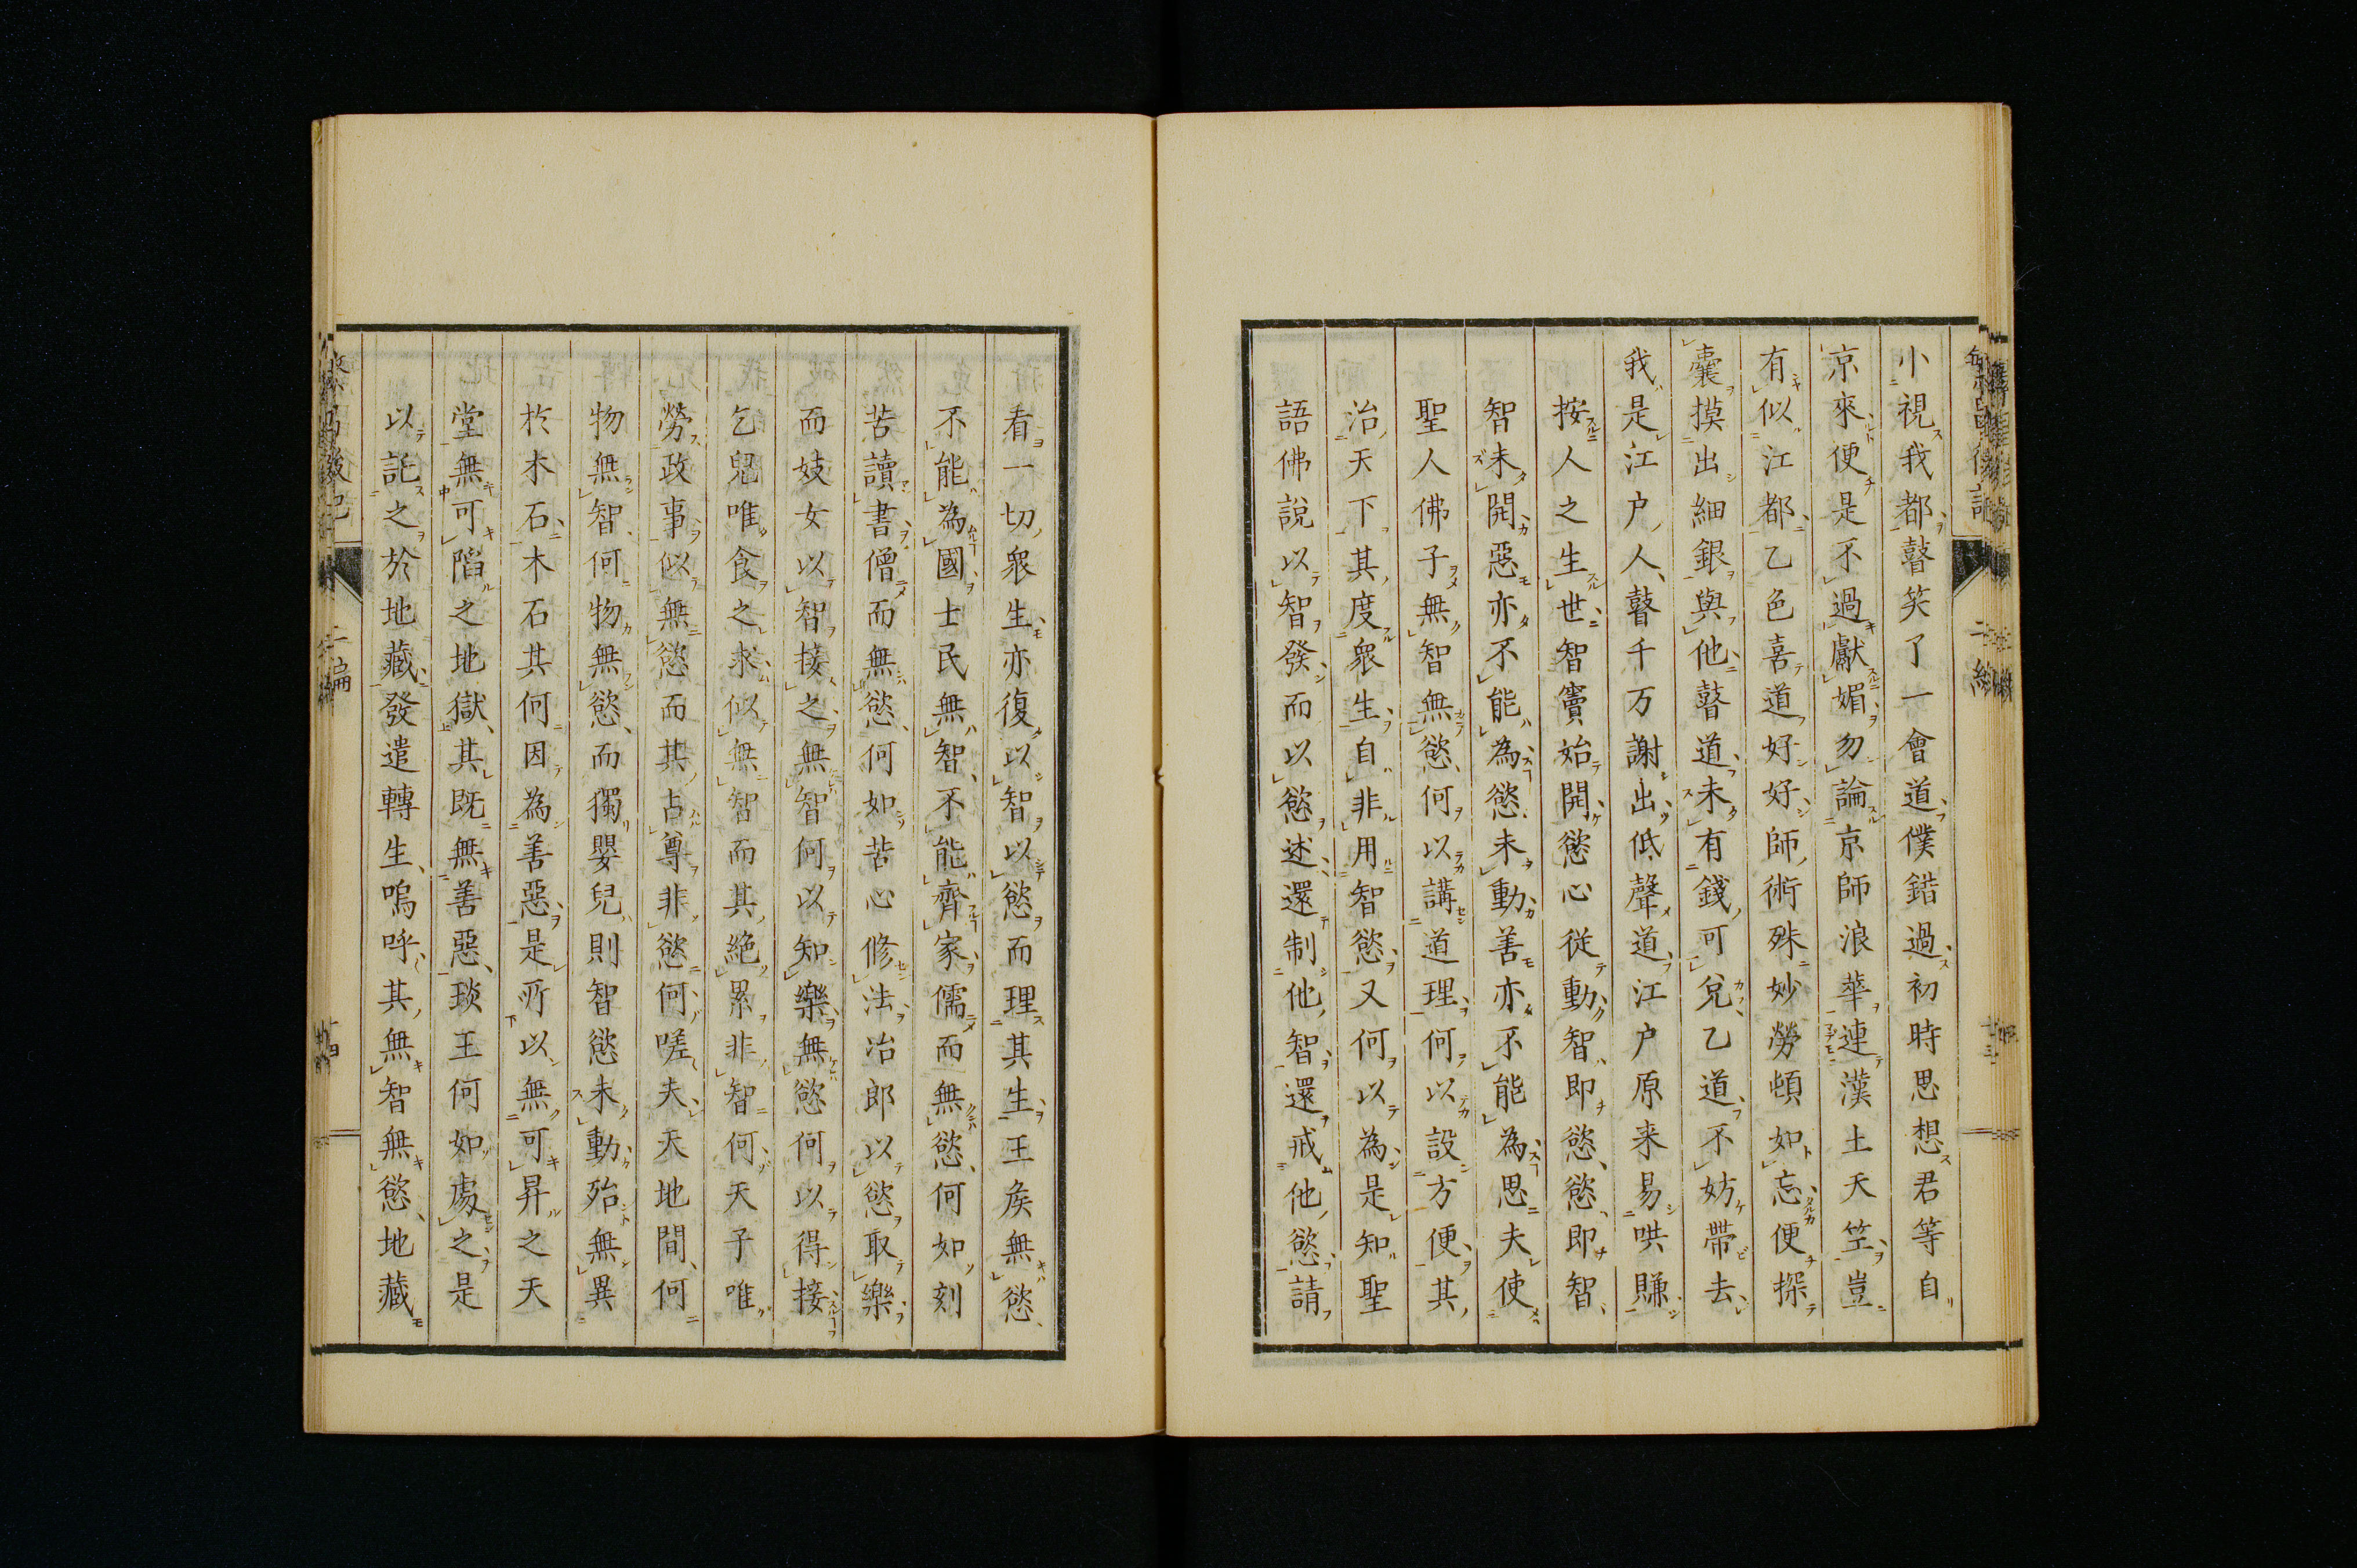 小視我都瞽笑了一會道僕錯過初時思想君等自
京來便是不過獻媚勿論京師浪華連漢土天竺豈
有似江都乙色喜道好好師術殊妙勞頓如忘便探
囊摸出細銀與他瞽道未有錢可兌乙道不妨帶去
我是江戶人瞽千万謝出低聲道江戶原来易哄賺
按人之生世智竇始開慾心從動智即慾慾即智
智未開惡亦不能為慾未動善亦不能為思夫使
聖人佛子無智無慾何以講道理何以設方便其
治天下其度衆生自非用智慾又何以為是知聖
語佛說以智發而以慾述還制他智還戒他慾請
看一切衆生亦復以智以慾而理其生王矦無慾
不能為國士民無智不能齊家儒而無慾何如刻
苦讀書僧而無慾何如苦心修法冶郎以慾取樂
而妓女以智接之無智何以知樂無慾何以得接
乞兒唯食之求似無智而其絶累非智何天子唯
勞政事似無慾而其占尊非慾何嗟夫天地間何
物無智何物無慾而獨嬰兒則智慾未動殆無異
於木石木石其何因為善惡是所以無可昇之天
堂無可陷之地獄其既無善惡琰王何如處之是
以託之於地藏發遣轉生嗚呼其無智無慾地藏
二編